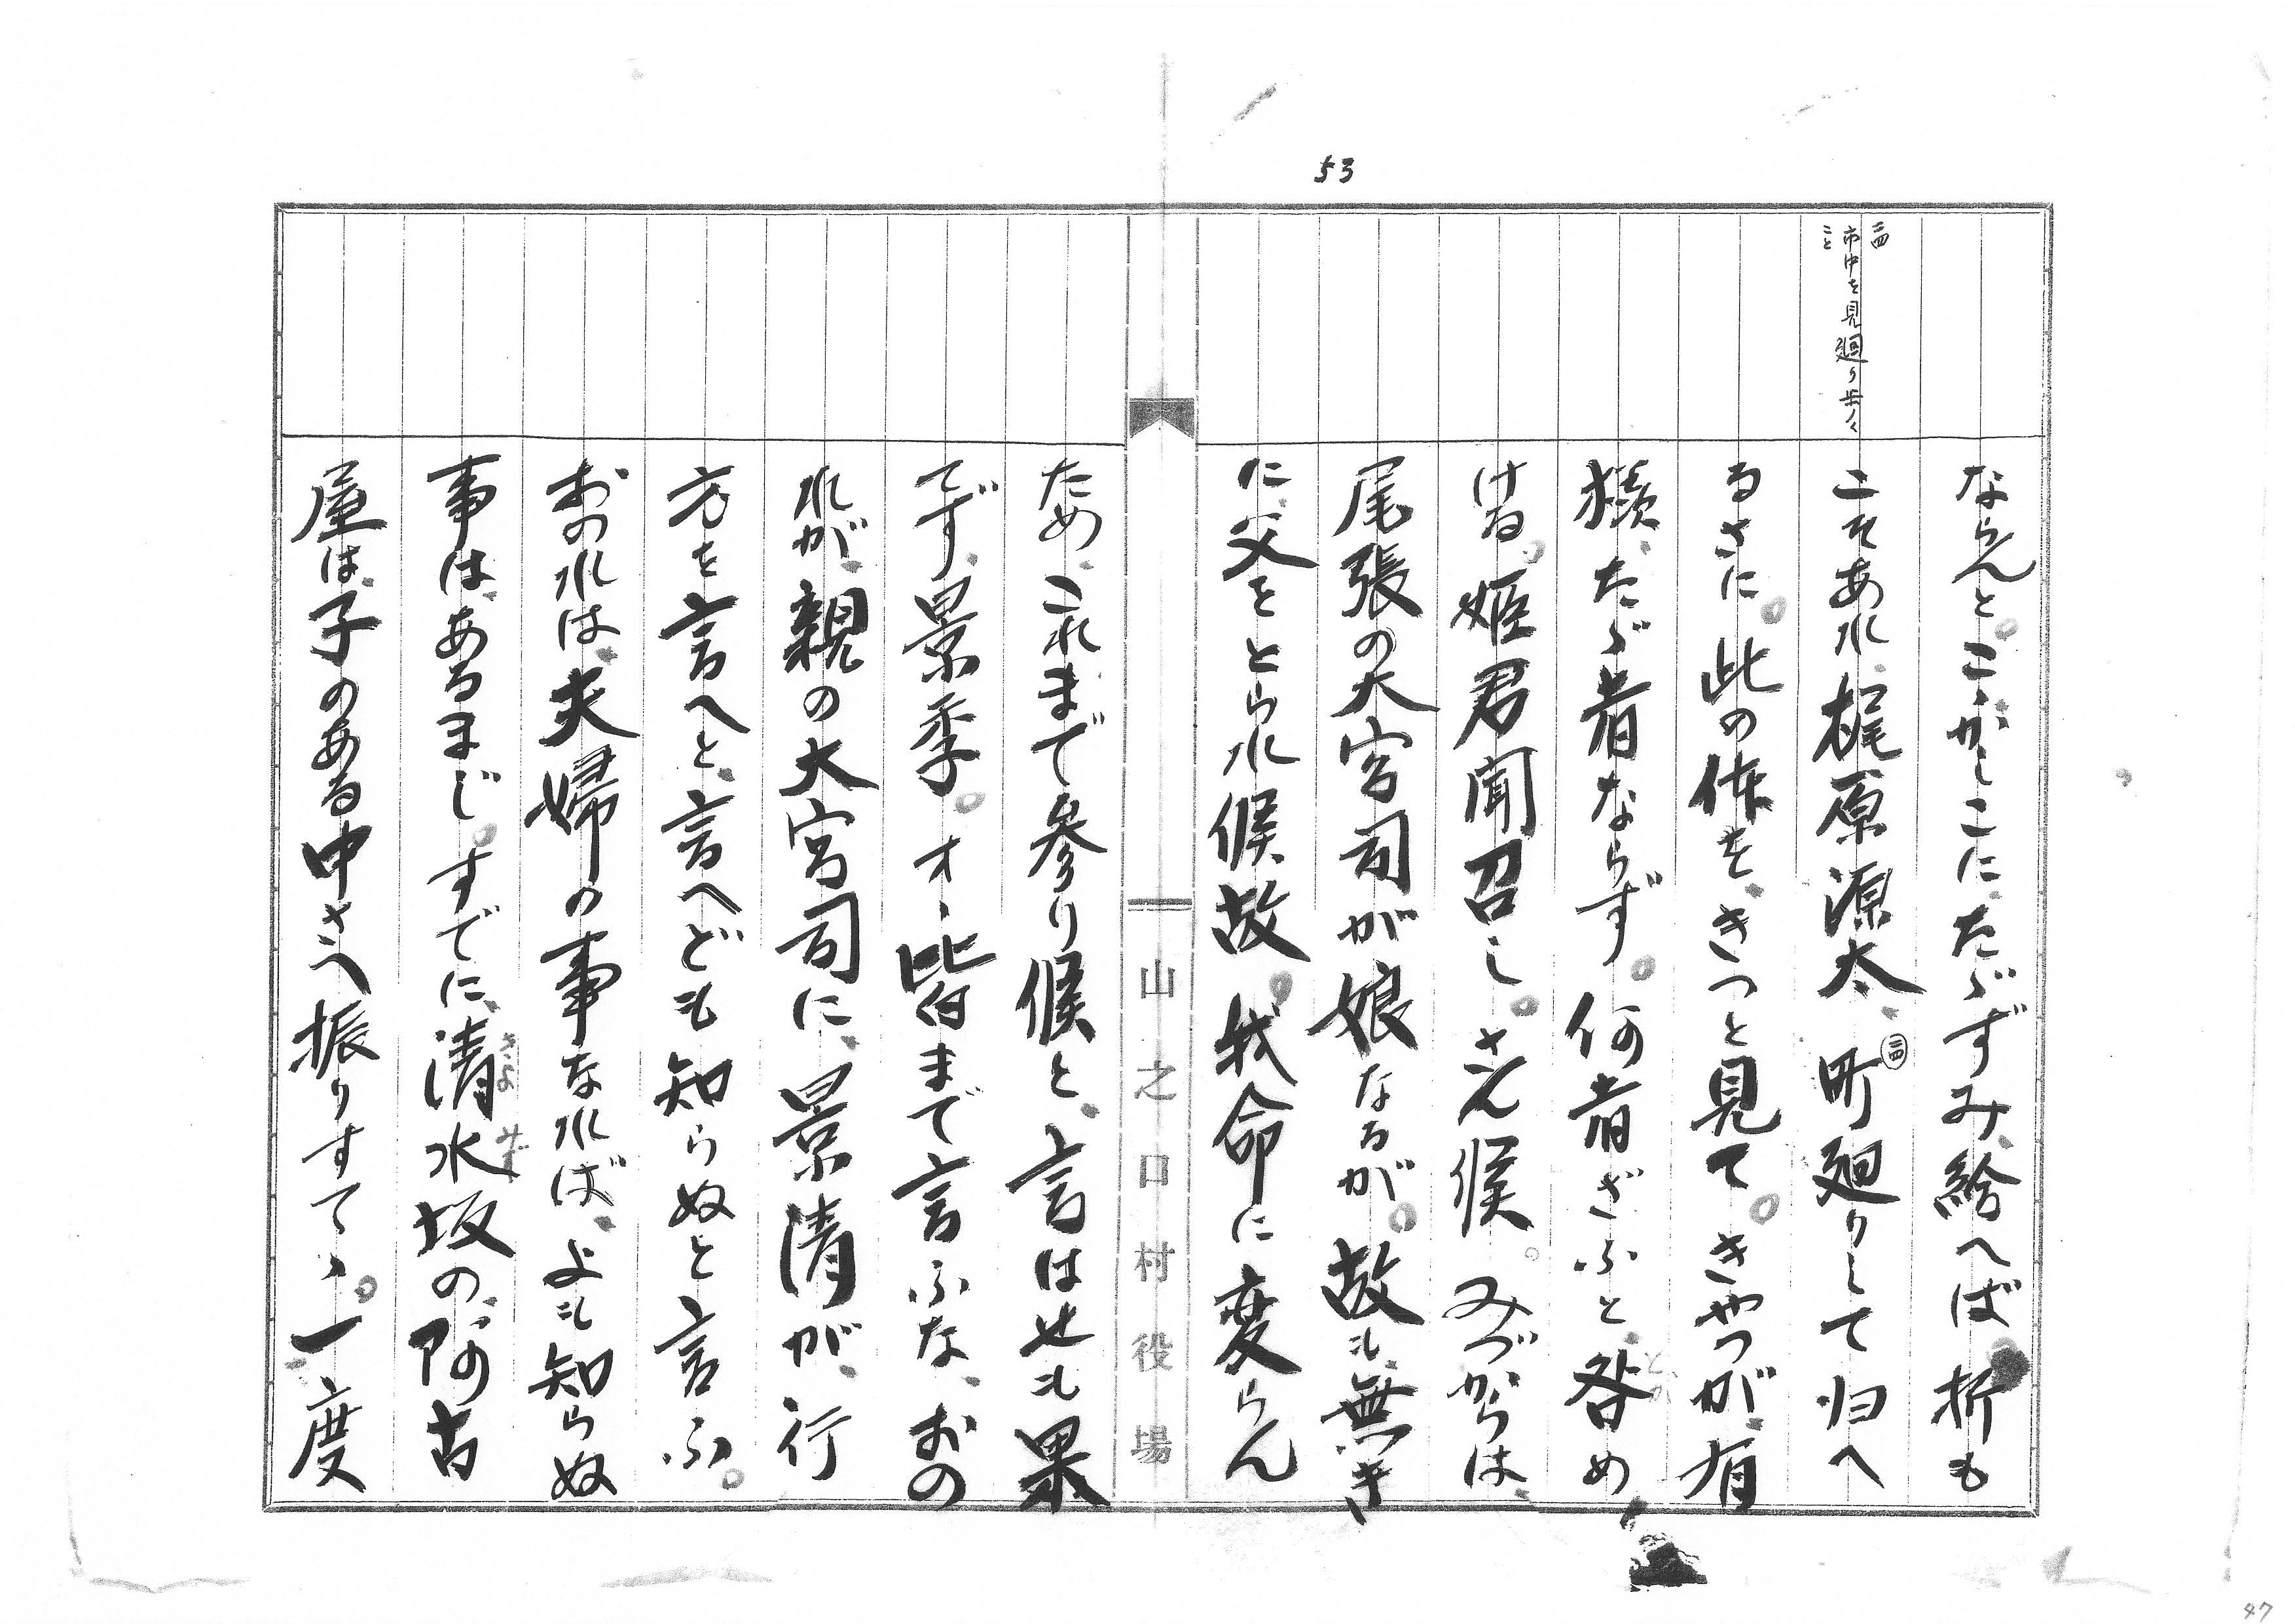 53
二四
市中を見廻り歩く
こと
ならんと。こゝかしこに、たゝずみ、給へば。折も
こそあれ、梶原源太、町㊁㊃廻りして帰へ
るさに。此の体を、きつと見て。きやつが、有
様、たゞ者ならず。何者ざふと、咎め
とが
ける。姫君聞召し。さん候。みづからは、
尾張の大宮司が娘なるが。故も、無き
に、父をとられ候故。我命に変らん
山之口村役場
ため、これまで参り候と、言はせも果
てず、景季。オヽ皆まで言ふな、おの
れが、親の大宮司に、景清が、行
方を言へと、言へども知らぬと言ふ。
おのれは、夫婦の事なれば、よも知らぬ
事は、あるまじ。すでに、清水坂の、阿古
きよ みず
屋は、子のある中さへ振りすてゝ。一度
47